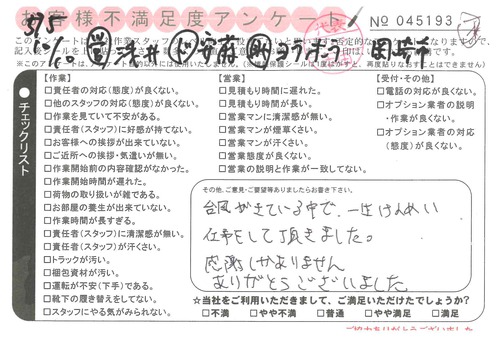 お客様不満足度アンケート
No 045193
【作業】
□責任者の対応(態度)が良くない。
□他のスタッフの対応(態度)が良くない。
□作業を見ていて不安がある。
□責任者(スタッフ)に好感が持てない。
□お客様への挨拶が出来ていない。
□ご近所への挨拶・気遣いが無い。
□作業開始前の内容確認がなかった。
□作業開始時間が遅れた。
□荷物の取り扱いが雑である。
□お部屋の養生が出来ていない。
□作業時間が長すぎる。
□責任者(スタッフ)に清潔感が無い。
□責任者(スタッフ)が汗くさい。
□トラックが汚い。
□梱包資材が汚い。
□運転が不安(下手)である。
□靴下の履き替えをしてない。
□スタッフにやる気がみられない。
【営業】
□見積もり時間に遅れた。
□見積もり時間が長い。
□営業マンに清潔感が無い。
□営業マンが煙草くさい。
□営業マンが汗くさい。
□営業態度が良くない。
□営業の説明と作業が一致してない。
【受付・その他】
□電話の対応が良くない。
□オプション業者の説明
・作業が良くない。
□オプション業者の対応
(態度)が良くない。
チェックリスト
その他、ご意見・ご要望等ありましたらお書き下さい。
台風がきている中で、一生けんめい
仕事をして頂きました。
感謝しかありません
ありがとうございました
☆当社をご利用いただきまして、ご満足いただけたでしょうか?
□不満 □やや不満 □普通 □やや満足 □満足
ご協力ありがとうございました